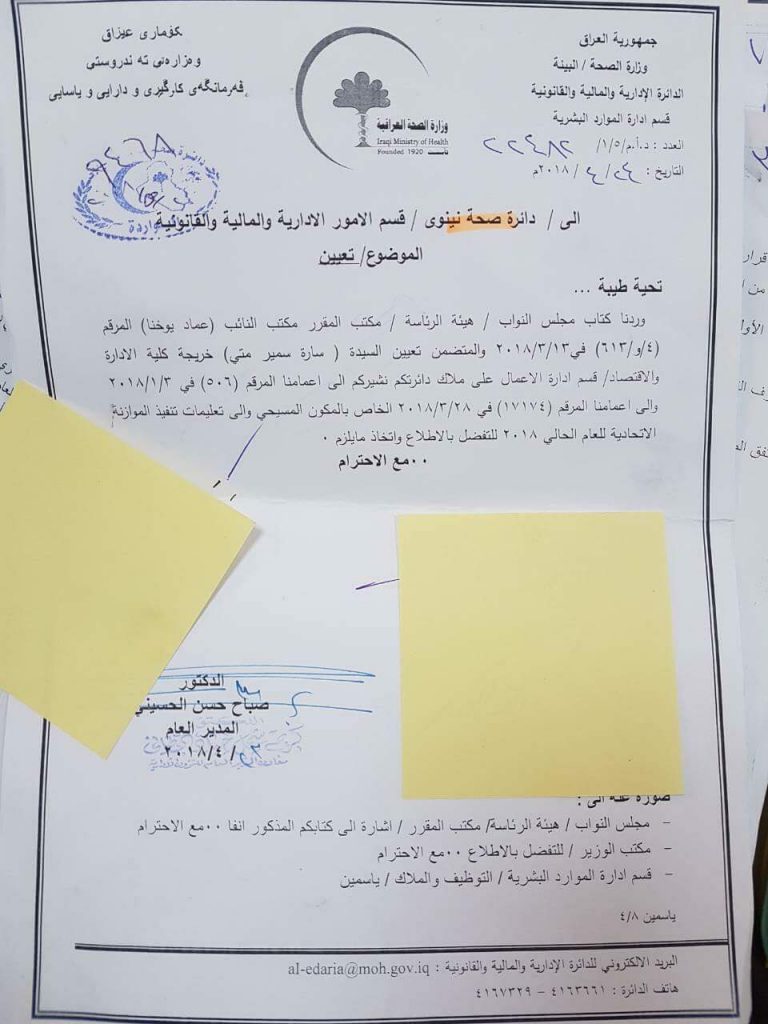 جمهورية العراق
وزارة الصحة / البيئة
الدائرة الإدارية والمالية والقانونية
قسم ادارة الموارد البشرية
العدد : د.أ.م/٥/١/ ٢٢٤٨٢
التاريخ : ٢٤/ ٤ / ٢٠١٨م
كۆماری عێراق
وەزارەتی تەندروستی
فەرمانگەی كارگێری و دارایی و یاسایی
وزارة الصحة العراقية
Iraqi Ministry of Health
Founded 1920 تأسست
الى / دائرة صحة نينوى / قسم الامور الادارية والمالية والقانونية
الموضوع/ تعيين
تحية طيبة ...
وردنا كتاب مجلس النواب / هيئة الرئاسة / مكتب المقرر مكتب النائب (عماد يوخنا) المرقم
(٤/و/٦١٣) في ٢٠١٨/٣/١٣ والمتضمن تعيين السيدة ( سارة سمير متي) خريجة كلية الادارة
والاقتصاد/ قسم ادارة الاعمال على ملاك دائرتكم نشيركم الى اعمامنا المرقم (٥٠٦) في ٢٠١٨/١/٣
والى اعمامنا المرقم (١٧١٧٤) في ٢٠١٨/٣/٢٨ الخاص بالمكون المسيحي والى تعليمات تنفيذ الموازنة
الاتحادية للعام الحالي ٢٠١٨ للتفضل بالاطلاع واتخاذ مايلزم ٠
٠٠مع الاحترام
الدكتور
صباح حسن الحسيني
المدير العام
/ ٢٠١٨/٤
صورة عنه الى :
- مجلس النواب / هيئة الرئاسة/ مكتب المقرر / اشارة الى كتابكم المذكور انفا ٠٠مع الاحترام
- مكتب الوزير / للتفضل بالاطلاع ٠٠مع الاحترام
- قسم ادارة الموارد البشرية / التوظيف والملاك / ياسمين
ياسمين ٤/٨
البريد الالكتروني للدائرة الإدارية والمالية والقانونية : al-edaria@moh.gov.iq
هاتف الدائرة : ٤١٦٣٦٦١ – ٤١٦٧٣٢٩